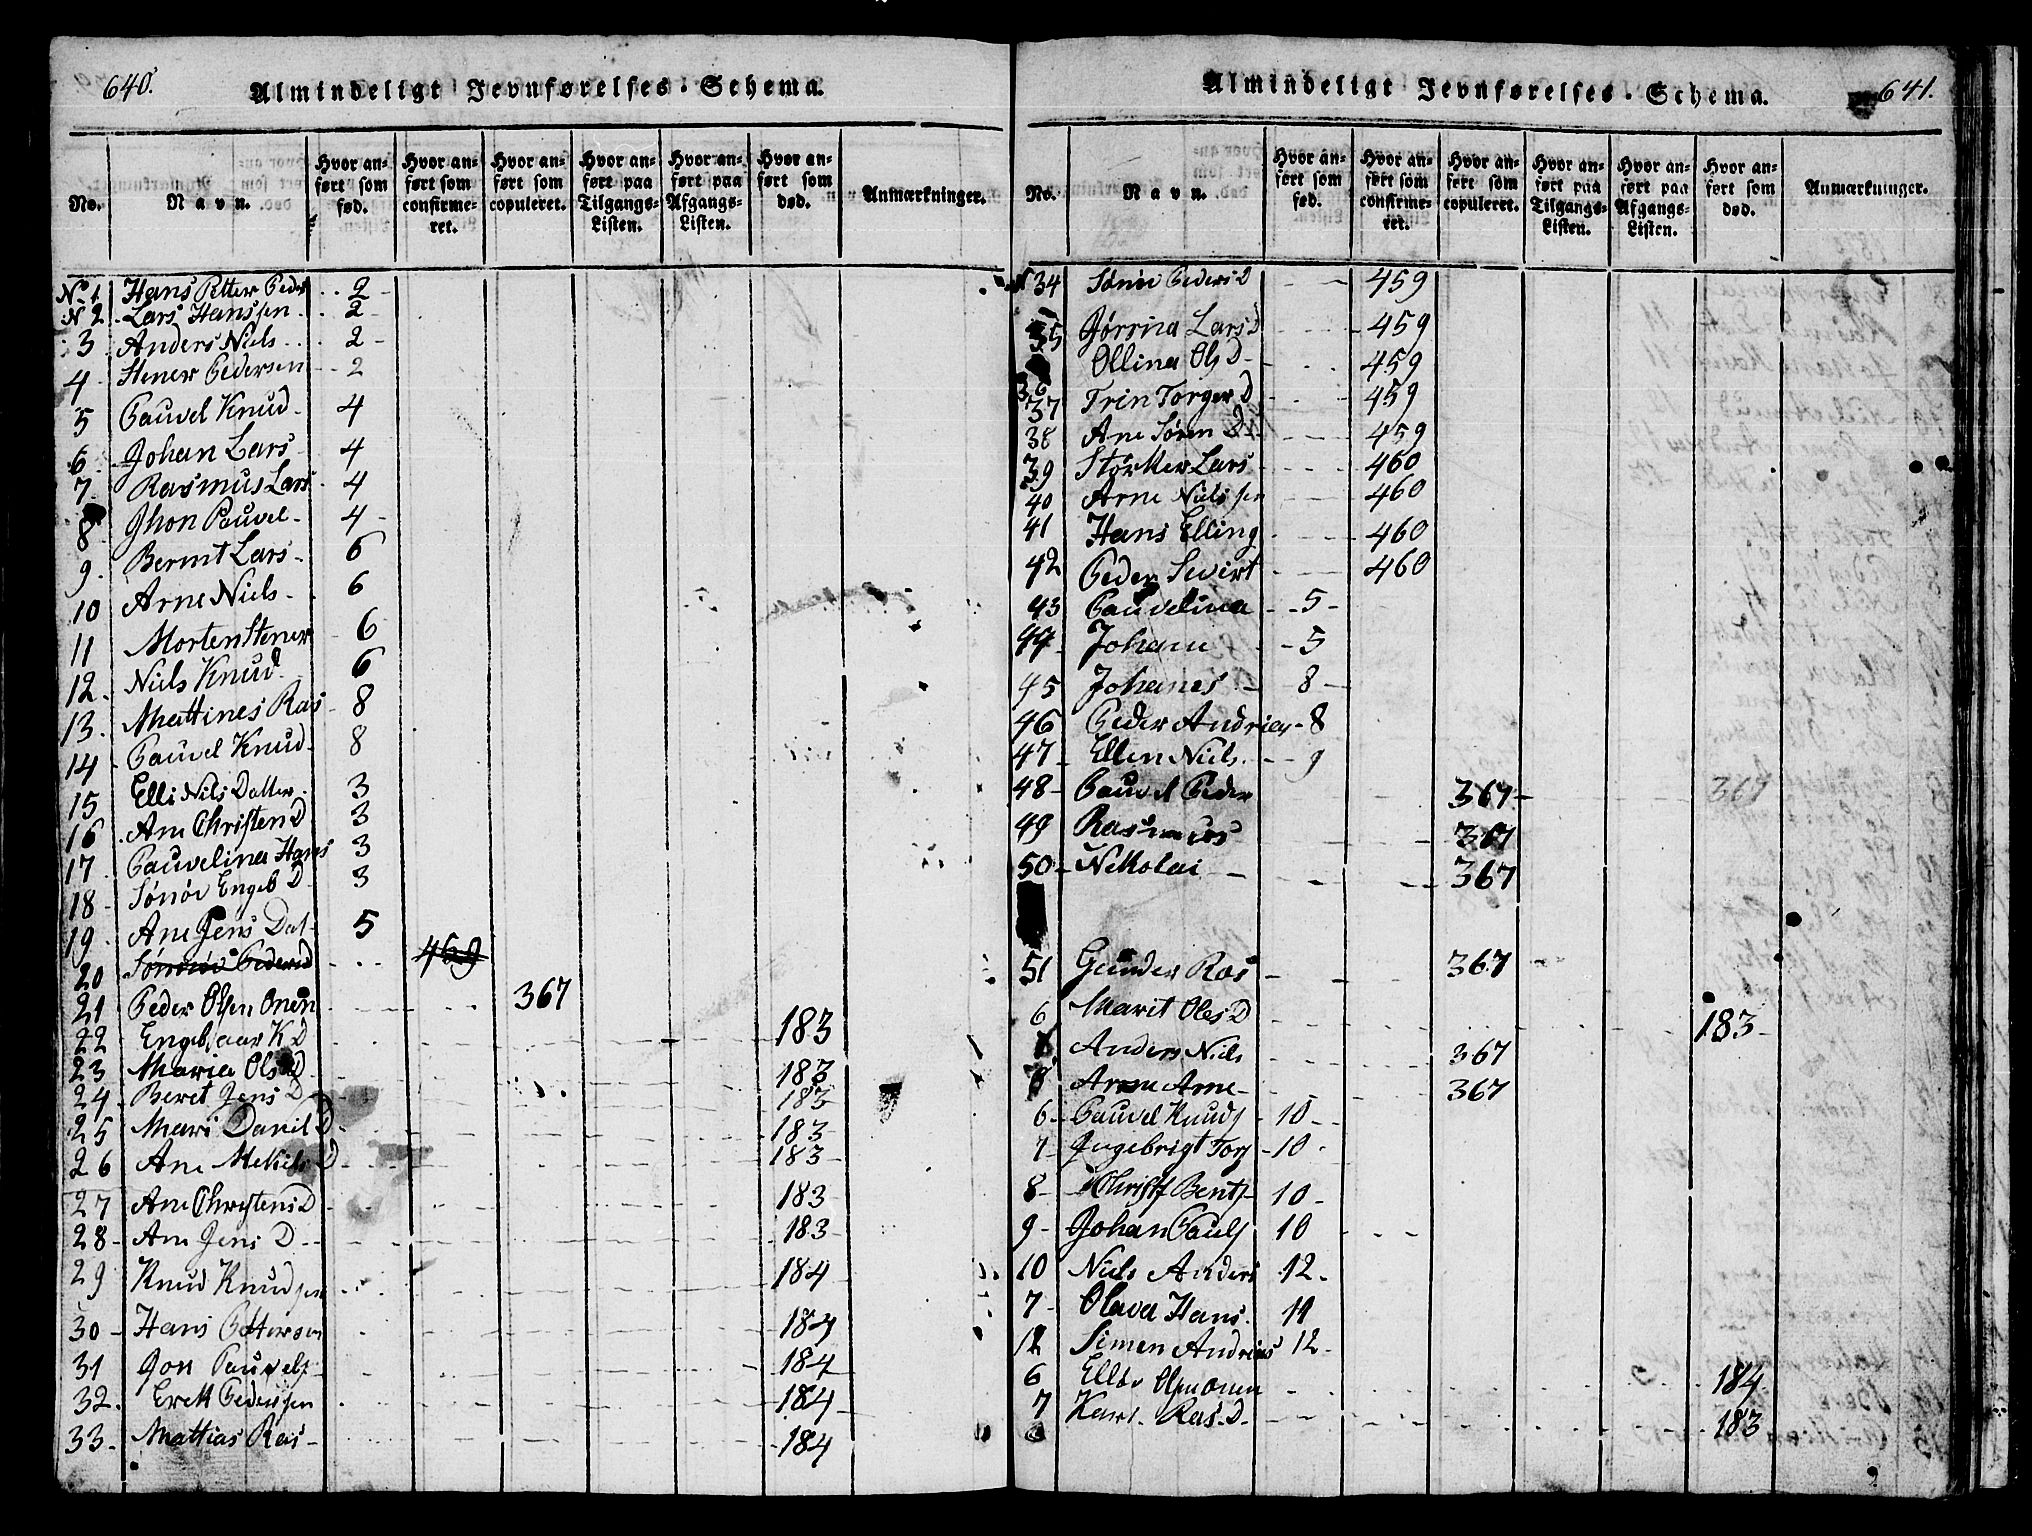 640.
Almindeligt Jevnførelses-Schema.
No.
Navn.
Hvor anført som fød.
Hvor anført som confirmeret.
Hvor anført som copuleret.
Hvor anført paa Tilgangs-Listen.
Hvor anført paa Afgangs-Listen.
Hvor anført som død.
Anmærkninger.
No 1 Hans Petter Peder 2
N 2 Lars Hanssen 2
3 Anders Niels 2
4 Stener Pedersen 2
5 Pauvel Knud 4
6 Johan Lars 4
7 Rasmus Lars 4
8 Jhon Pauvel 4
9. Bernt Lars 6
10 Arne Niels 6
11 Morten Stener 6
12. Niels Knud 6
13. Mattines Ras 8
14 Pauvel Knud 8
15 Elli Nils Datter 3
16 Ane Christen D 3
17. Pauvelina Hans 3
18 Sønøv Engeb D 3
19. Ane Jens Dat 5
20 Pedersd 459
21 Peder Olsen 367
22 K D 183
23 Maria Ols D 183
24 Beret Jens D 183
25 Mari Danil D 183
26 Ane Mekils D 183
27 Ane Christens D 183
28 Ane Jens D 183
29 Knud Knudsen 184
30 Hans Pettersen 184
31 Jon Pauvels 184
32. Erett Pedersen 184
33. Mattias Ras 184
641.
Almindeligt Jevnførelses-Schema.
No.
Navn.
Hvor anført som fød.
Hvor anført som confirmeret.
Hvor anført som copuleret.
Hvor anført paa Tilgangs-Listen.
Hvor anført paa Afgangs-Listen.
Hvor anført som død.
Anmærkninger.
34 Pedersd 459
35 Gørrina Lars D 459
36 Ollina Ols D 459
37 Trin Torger D 459
38 Ane Søren D 459
39 Størker Lars 460
40 Arne Nielssen 460
41 Hans Elling 460
42 Peder Sivirt 460
43 Pauvelina 5
44 Johan 5
45 Johanes 8
46 Peder Andries 8
47 Ellen Niels 9
48 Pauvel Peder 367 367
49 Rasmus 367
50 Nikolai 367
51 Gunder Ras 367
6 Marit Oles D 183
Anders Niels 367
8 Arne Arne 367
6 Pauvel Knuds 10
7 Ingebrigt Tors 10
8 Christ Bents 10
9 Johan Pauls 10
10 Niels Anders 12.
7 Olava Hans. 11
12 Simen Andrias 12
6 184
7 Kari Ras. D. 183